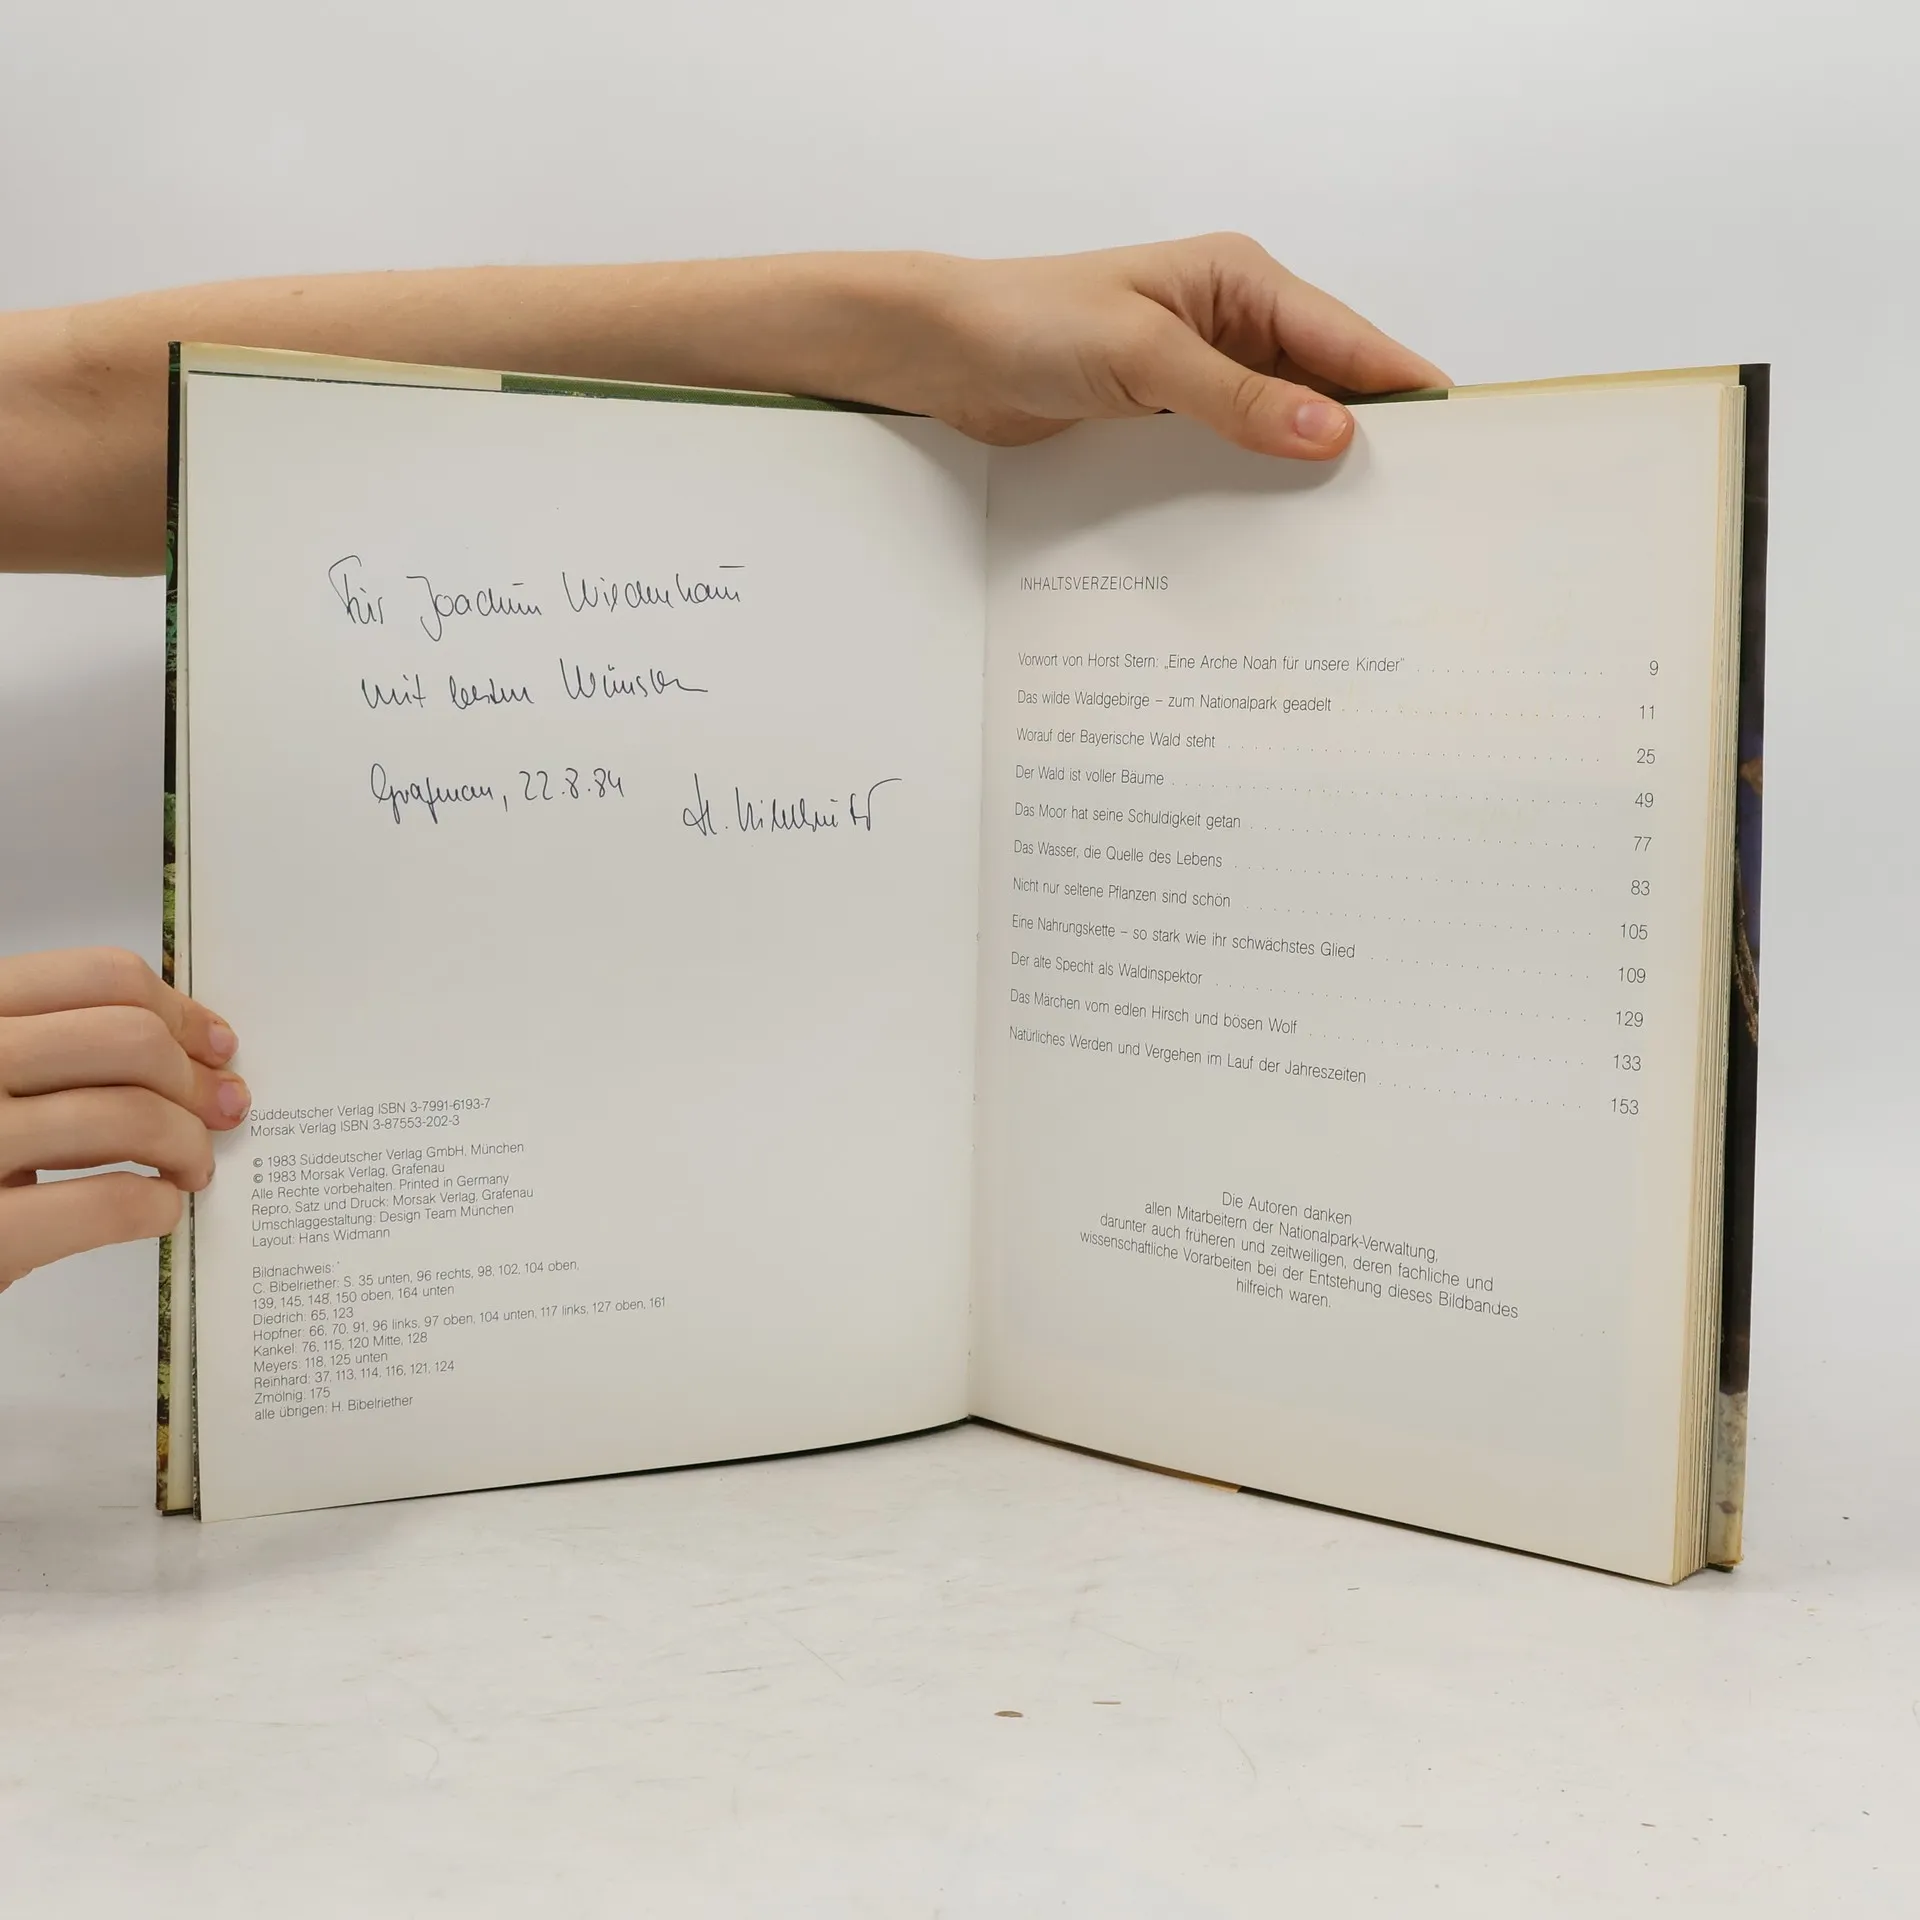 Für Joachim
mit besten Wünschen
Grafenau, 22.8.84 H. Bibelriether
Süddeutscher Verlag ISBN 3-7991-6193-7
Morsak Verlag ISBN 3-87553-202-3
© 1983 Süddeutscher Verlag GmbH, München
© 1983 Morsak Verlag, Grafenau
Alle Rechte vorbehalten. Printed in Germany
Repro, Satz und Druck: Morsak Verlag, Grafenau
Umschlaggestaltung: Design Team München
Layout: Hans Widmann
Bildnachweis:
C. Bibelriether: S. 35 unten, 96 rechts, 98, 102, 104 oben,
139, 145, 148, 150 oben, 164 unten
Diedrich: 65, 123
Hopfner: 66, 70, 91, 96 links, 97 oben, 104 unten, 117 links, 127 oben, 161
Kankel: 76, 115, 120 Mitte, 128
Meyers: 118, 125 unten
Reinhard: 37, 113, 114, 116, 121, 124
Zmölnig: 175
alle übrigen: H. Bibelriether
INHALTSVERZEICHNIS
Vorwort von Horst Stern: „Eine Arche Noah für unsere Kinder" 9
Das wilde Waldgebirge – zum Nationalpark geadelt 11
Worauf der Bayerische Wald steht 25
Der Wald ist voller Bäume 49
Das Moor hat seine Schuldigkeit getan 77
Das Wasser, die Quelle des Lebens 83
Nicht nur seltene Pflanzen sind schön 105
Eine Nahrungskette – so stark wie ihr schwächstes Glied 109
Der alte Specht als Waldinspektor 129
Das Märchen vom edlen Hirsch und bösen Wolf 133
Natürliches Werden und Vergehen im Lauf der Jahreszeiten 153
Die Autoren danken
allen Mitarbeitern der Nationalpark-Verwaltung,
darunter auch früheren und zeitweiligen, deren fachliche und
wissenschaftliche Vorarbeiten bei der Entstehung dieses Bildbandes
hilfreich waren.